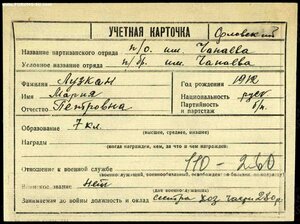 УЧЕТНАЯ КАРТОЧКА Орловский
Название партизанского отряда п/о. им. Чапаева
Условное название отряда п/бр. им. Чапаева
Фамилия Лузкан Год рождения 1912
Имя Мария Национальность русск
Отчество Петровна Партийность и партстаж б/п.
Образование 7 кл.
(высшее, среднее, низшее)
Награды
(когда награжден, кем, за что и чем награжден)
Отношение к военной службе 110-260
Воинское звание нет
Занимаемая до войны должность и оклад сестра хоз. части